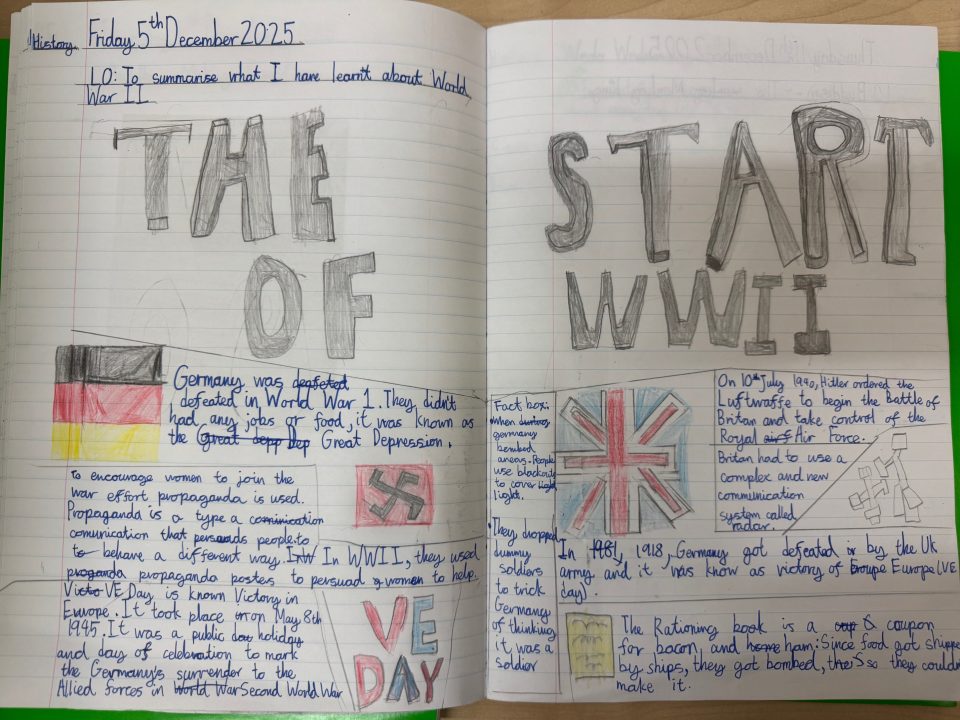 History
Friday 5th December 2025
LO: To summarise what I have learnt about World
War II
THE
OF
START
WWII
Germany was deafeted
defeated in World War 1. They didn't
had any jobs or food, it was known as
the Great depp Dep Great Depression.
To encourage women to join the
war effort propaganda is used.
Propaganda is a type a cominication
comunication that persuads people to
to behave a different way. InW In WWII, they used
proganda propaganda posters to persuad women to help.
Victo VE Day is known Victory in
Europe. It took place on May 8th
1945. It was a public holiday
and day of celebration to mark
the Germany's surrender to the
Allied forces in World War Second World War
VE
DAY
Fact box:
When
germany
bombed
areas. People
use blackouts
to cover light
light.
They dropped
dummy
soldiers
to trick
Germany
of thinking
it was a
soldier
On 10th July 1940, Hitler ordered the
Luftwaffe to begin the Battle of
Britan and take control of the
Royal airf Air Force.
Britan had to use a
complex and new
communication
system called
radar.
In 1981, 1918, Germany got defeated by the UK
army and it was know as victory of Europe (VE
day).
The Rationing book is a coupon
for bacon and ham. Since food got shippe
by ships, they got bombed, so they couldn
make it.